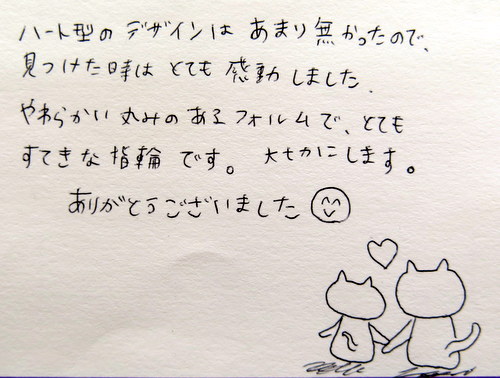 ハート型の デザインは あまり 無かったので、
見つけた時は とても 感動しました.
やわらかい 丸みの ある フォルムで、とても
すてきな 指輪 です。 大切にします。
ありがとうございました